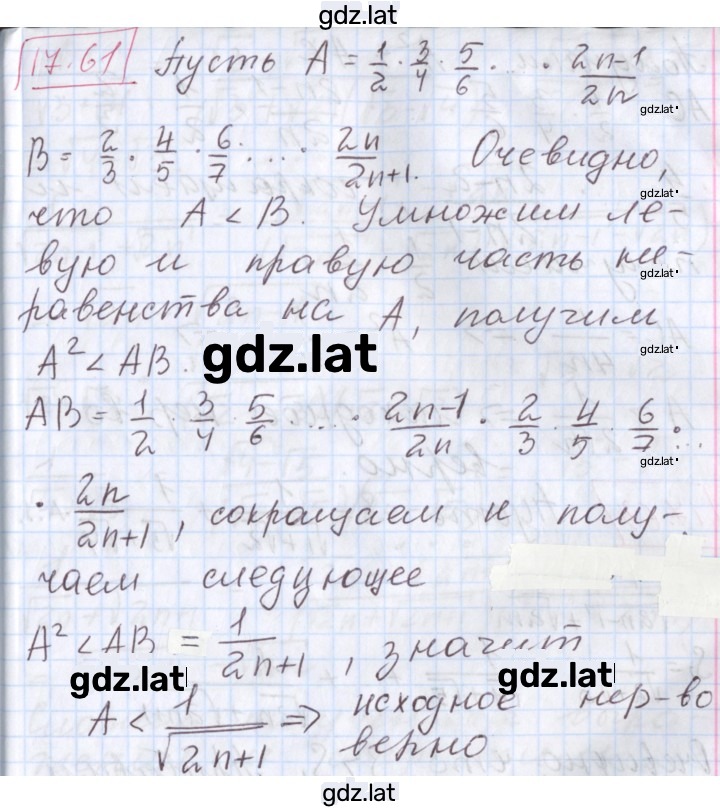 gdz.lat
17.61 Пусть A = 1/2 · 3/4 · 5/6 · ... · (2n-1)/2n
gdz.lat
B = 2/3 · 4/5 · 6/7 · ... · 2n/(2n+1). Очевидно,
gdz.lat
что A < B. Умножим ле-
вую и правую часть не-
gdz.lat
равенства на A, получим
A² < AB.
gdz.lat
gdz.lat
AB = 1/2 · 3/4 · 5/6 · ... · (2n-1)/2n · 2/3 · 4/5 · 6/7 · ...
gdz.lat
· 2n/(2n+1), сокращаем и полу-
чаем следующее
A² < AB = 1/(2n+1), значит
gdz.lat
gdz.lat
A < 1/√(2n+1) => исходное нер-во
верно
gdz.lat